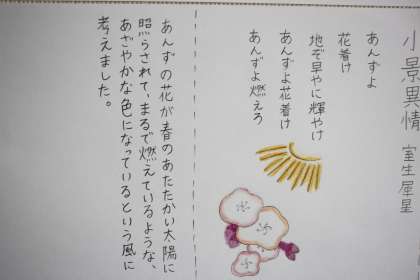 小景異情 室生犀星
あんずよ
花着け
地ぞ早やに輝やけ
あんずよ花着け
あんずよ燃えろ
あんずの花が春のあたたかい太陽に
照らされて、まるで燃えているような、
あざやかな色になっているという風に
考えました。